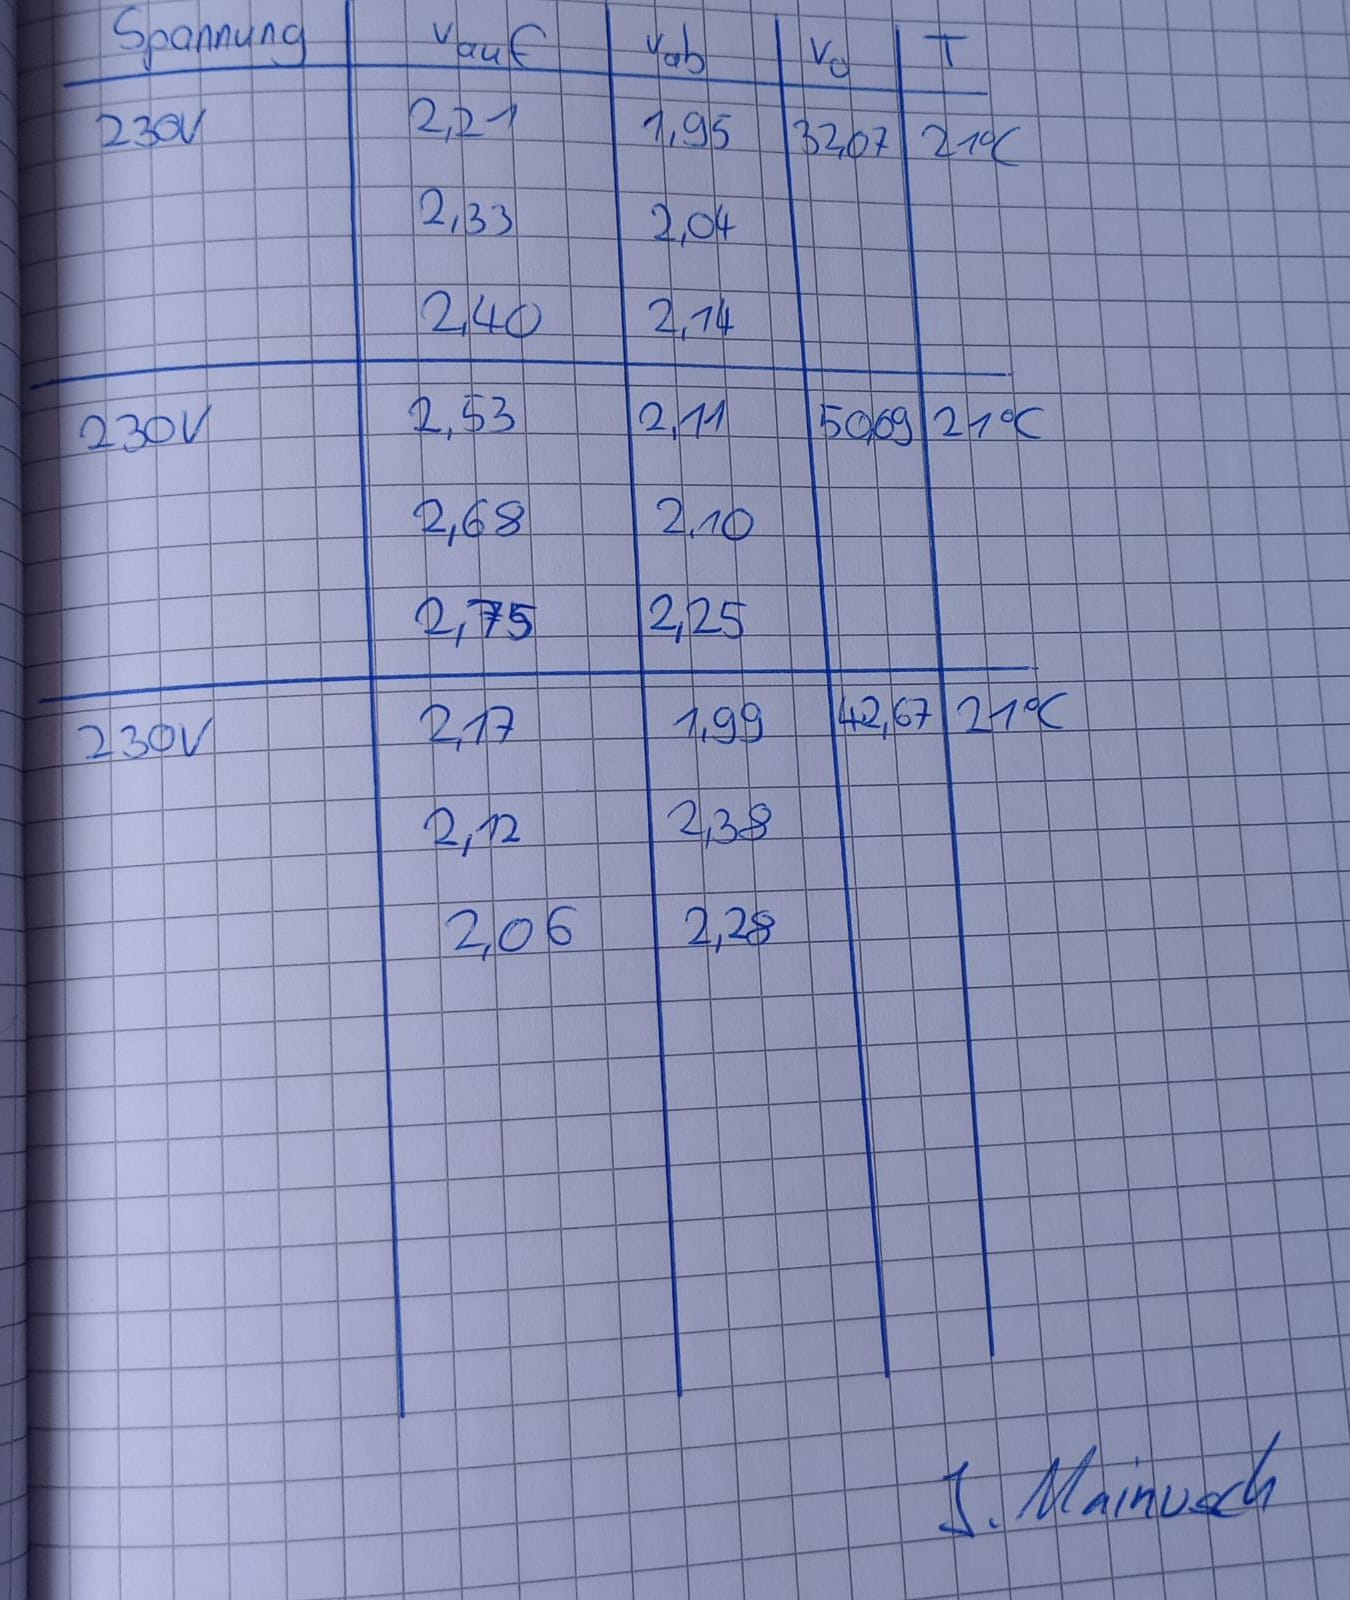 Spannung vauf vab v0 T
230V 2,21 1,95 32,07 21°C
2,33 2,04
2,40 2,14
230V 2,53 2,11 50,69 21°C
2,68 2,10
2,75 2,25
230V 2,17 1,99 42,67 21°C
2,12 2,38
2,06 2,28
J. Mainusch